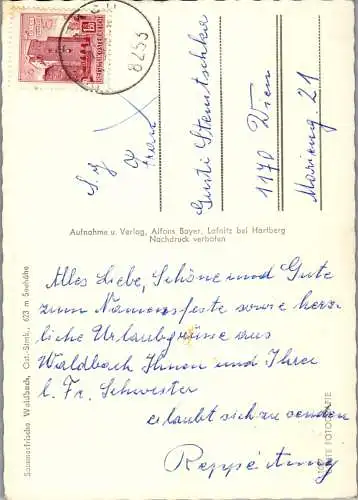 8253
S. g.
Frau
Gusti Stemtschka
1170 Wien
Marieng. 21
Aufnahme u. Verlag, Alfons Bayer, Lafnitz bei Hartberg
Nachdruck verboten
Sommerfrische Waldbach, Ost-Stmk., 623 m Seehöhe
Alles Liebe, Schöne und Gute
zum Namensfeste sowie herz-
liche Urlaubgrüsse aus
Waldbach Ihnen und Ihrer
l. Fr. Schwester
erlaubt sich zu senden
ECHTE FOTOGRAFIE